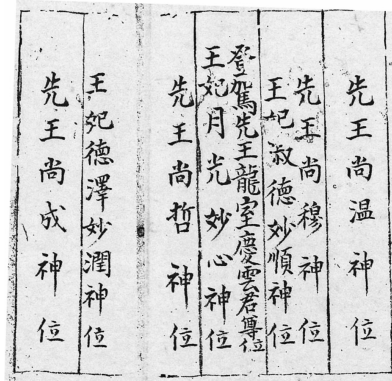 先王尚温神位
先王尚穆神位
王妃淑德妙順神位
登駕先王龍室慶雲君尊位
王妃月光妙心神位
先王尚哲神位
王妃德澤妙潤神位
先王尚成神位